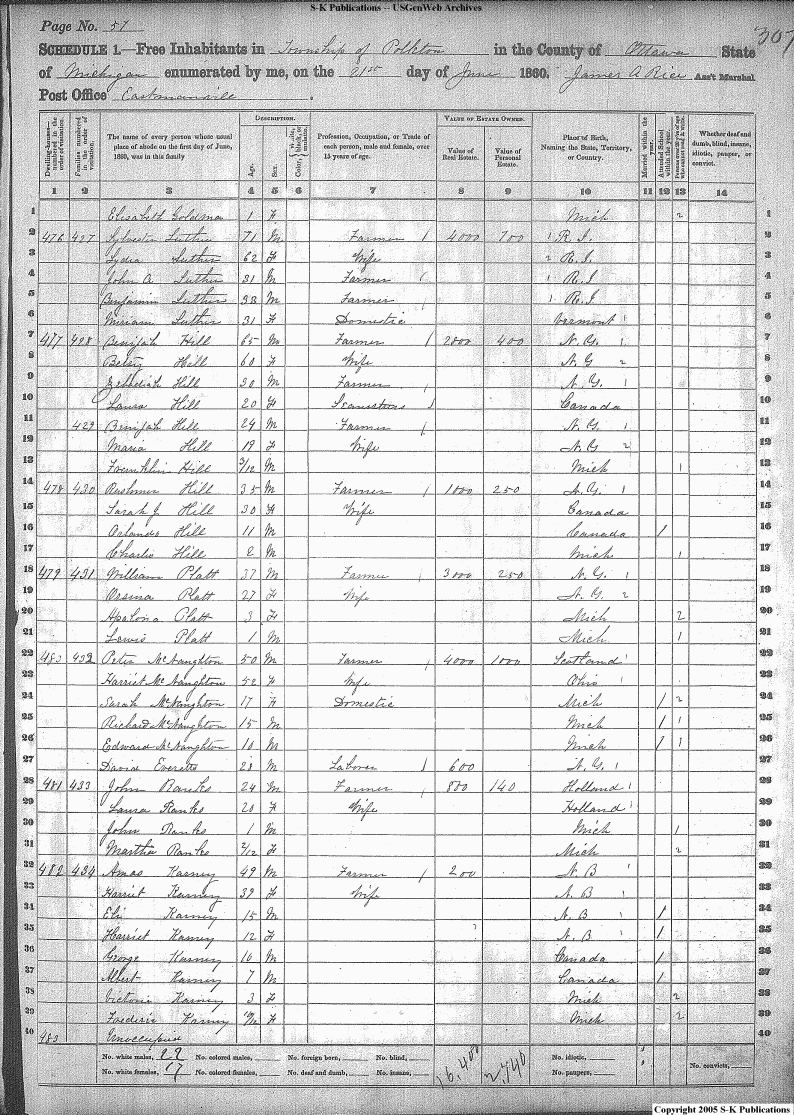 S-K Publications -- USGenWeb Archives
Page No. 57
307
SCHEDULE 1.—Free Inhabitants in Township of Polkton in the County of Ottawa State
of Michigan enumerated by me, on the 21st day of June 1860. James A Rice Ass't Marshal
Post Office Eastmanville .
DESCRIPTION. VALUE OF ESTATE OWNED.
Dwelling-houses numbered in the order of visitation. Families numbered in the order of visitation. The name of every person whose usual place of abode on the first day of June, 1860, was in this family Age. Sex. Color, White, black, or mulatto. Profession, Occupation, or Trade of each person, male and female, over 15 years of age. Value of Real Estate. Value of Personal Estate. Place of Birth, Naming the State, Territory, or Country. Married within the year. Attended School within the year. Persons over 20 y'rs of age who cannot read & write. Whether deaf and dumb, blind, insane, idiotic, pauper, or convict.
1 2 3 4 5 6 7 8 9 10 11 12 13 14
1 Elisabeth Goldman 1 F Mich 2 1
2 476 427 Sylvester Luther 71 M Farmer 1 4000 700 1 R.I. 2
3 Lydia Luther 62 F Wife 2 R.I. 3
4 John A Luther 31 M Farmer 1 R.I. 4
5 Benjamin Luther 33 M Farmer 1 R.I. 5
6 Miriam Luther 31 F Domestic Vermont 1 6
7 477 428 Benijah Hill 65 M Farmer 1 2000 400 N.Y. 1 7
8 Betsy Hill 60 F Wife N.Y 2 8
9 Zebadiah Hill 30 M Farmer N.Y. 1 9
10 Laura Hill 20 F Seamstress 1 Canada 10
11 429 Benijah Hill 24 M Farmer N.Y. 1 11
12 Maria Hill 19 F Wife N.Y 2 12
13 Franklin Hill 3/12 M Mich 1 13
14 478 430 Rushmer Hill 35 M Farmer 1 1000 250 N.Y. 1 14
15 Sarah J Hill 30 F Wife Canada 15
16 Orlando Hill 11 M Canada 1 16
17 Charles Hill 2 M Mich 1 17
18 479 431 William Platt 37 M Farmer 1 3000 250 N.Y. 1 18
19 Orsina Platt 27 F Wife N.Y. 2 19
20 Apalona Platt 3 F Mich 2 20
21 Lewis Platt 1 M Mich 1 21
22 480 432 Peter McNaughton 50 M Farmer 1 4000 1000 Scotland 1 22
23 Harriet McNaughton 52 F Wife Ohio 1 23
24 Sarah McNaughton 17 F Domestic Mich 1 2 24
25 Richard McNaughton 15 M Mich 1 1 25
26 Edward McNaughton 10 M Mich 1 1 26
27 David Everetts 28 M Laborer 1 600 N.Y. 1 27
28 481 433 John Ranks 24 M Farmer 1 800 140 Holland 1 28
29 Laura Ranks 20 F Wife Holland 1 29
30 John Ranks 1 M Mich 1 30
31 Martha Ranks 2/12 F Mich 2 31
32 482 434 Amas Karney 49 M Farmer 1 200 N.B 1 32
33 Harriet Karney 39 F Wife N.B 1 33
34 Eli Karney 15 M N.B 1 1 34
35 Harriet Karney 12 F N.B 1 1 35
36 George Karney 10 M Canada 1 36
37 Albert Karney 7 M Canada 1 37
38 Victoria Karney 3 F Mich 2 38
39 Frederic Karney F Mich 2 39
40 483 Unoccupied 40
No. white males, 22 No. colored males, No. foreign born, No. blind, 16,400 2,740 No. idiotic, No. convicts,
No. white females, 17 No. colored females, No. deaf and dumb, No. insane, No. paupers,
Copyright 2005 S-K Publications